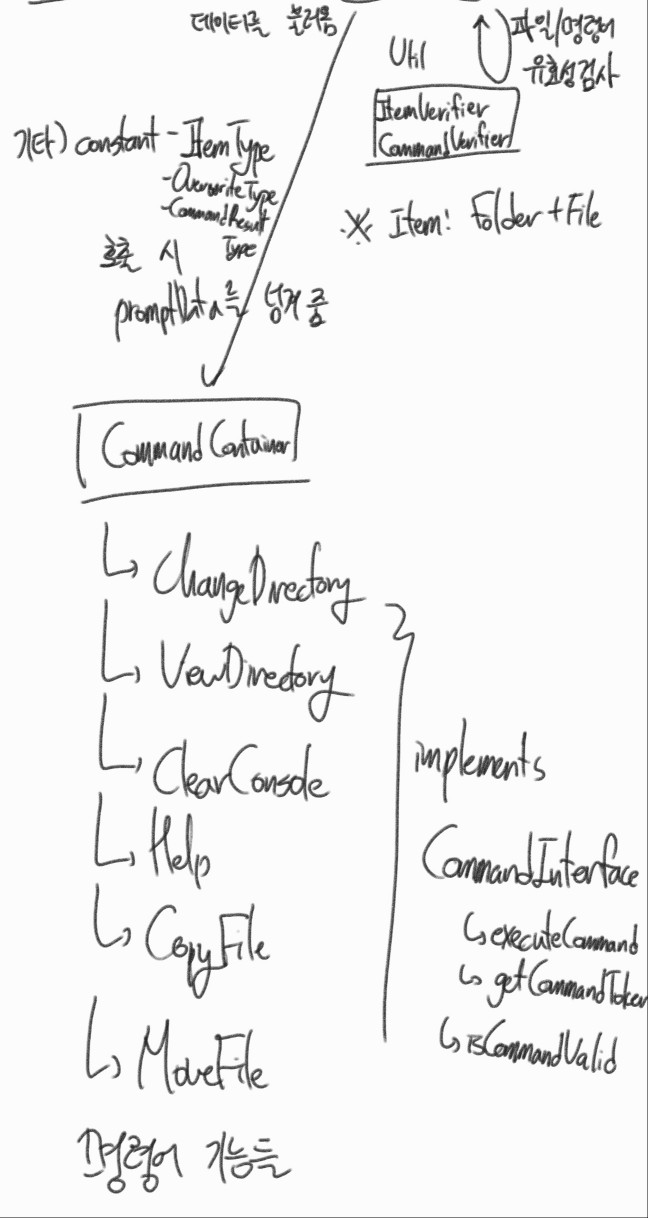 데이터를 불러옴
파일/명령어
유효성검사
Util
ItemVerifier
CommandVerifier
기타) constant - ItemType
- OverwriteType
- CommandResult
Type
※ Item: Folder + File
호출 시
promptData를 넘겨 줌
CommandContainer
↳ ChangeDirectory
↳ ViewDirectory
↳ ClearConsole
↳ Help
↳ CopyFile
↳ MoveFile
implements
CommandInterface
↳ executeCommand
↳ getCommandToken
↳ isCommandValid
명령어 기능들